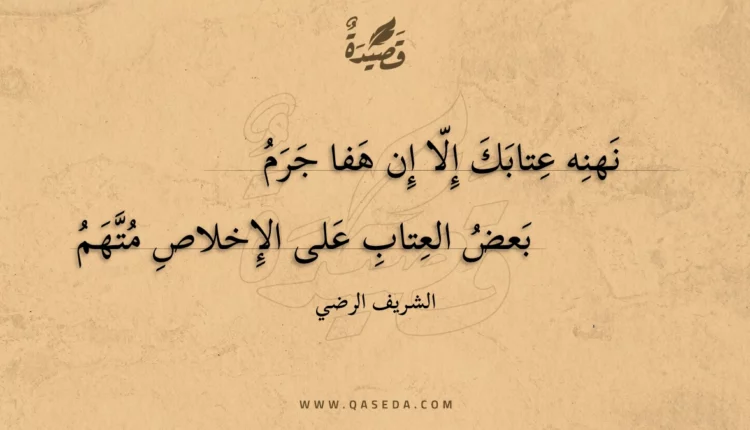 قَصِيْدَةٌ
نَهنِه عِتابَكَ إِلّا إِن هَفا جَرَمُ
بَعضُ العِتابِ عَلى الإِخلاصِ مُتَّهَمُ
الشريف الرضي
WWW.QASEDA.COM